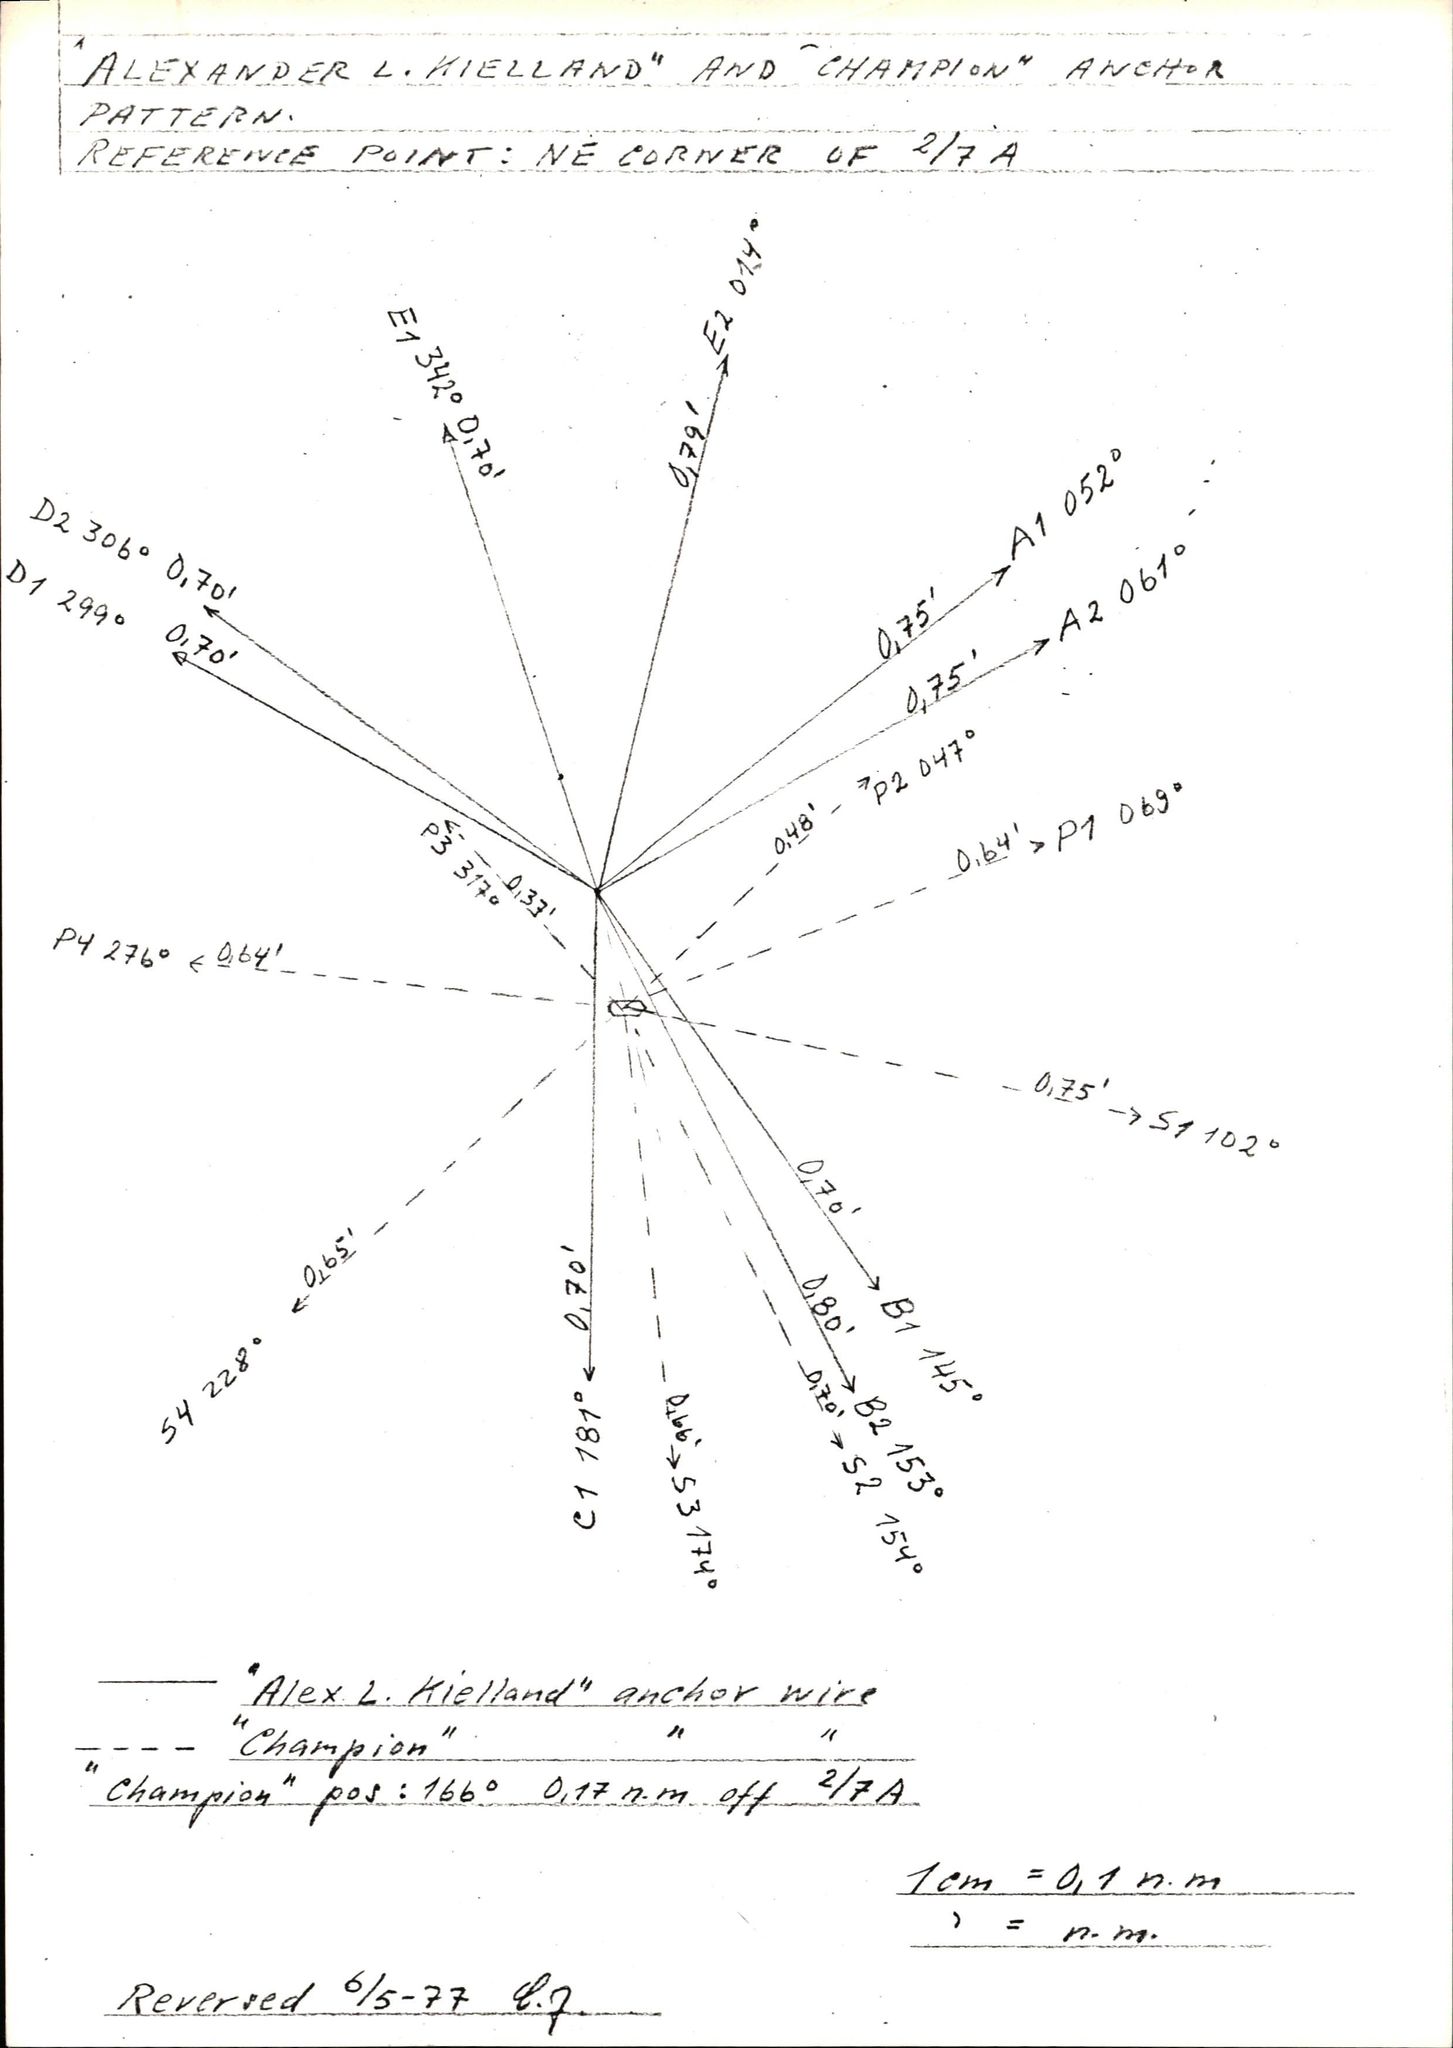 "ALEXANDER L. KIELLAND" AND "CHAMPION" ANCHOR
PATTERN.
REFERENCE POINT: NE CORNER OF 2/7 A
E2 014°
0,79'
E1 342° 0,70'
A1 052°
0,75'
D2 306° 0,70'
D1 299° 0,70'
A2 061°
0,75'
P2 047°
0,48'
P1 069°
0,64'
P3 317°
0,37'
P4 276° 0,64'
0,75' S1 102°
0,70'
B1 145°
0,80'
B2 153°
0,70' S2 154°
0,65'
S4 228°
0,70'
C1 181°
0,66' S3 174°
"Alex L. Kielland" anchor wire
"Champion" " "
"Champion" pos: 166° 0,17 n.m off 2/7 A
1 cm = 0,1 n.m
' = n.m.
Reversed 6/5-77